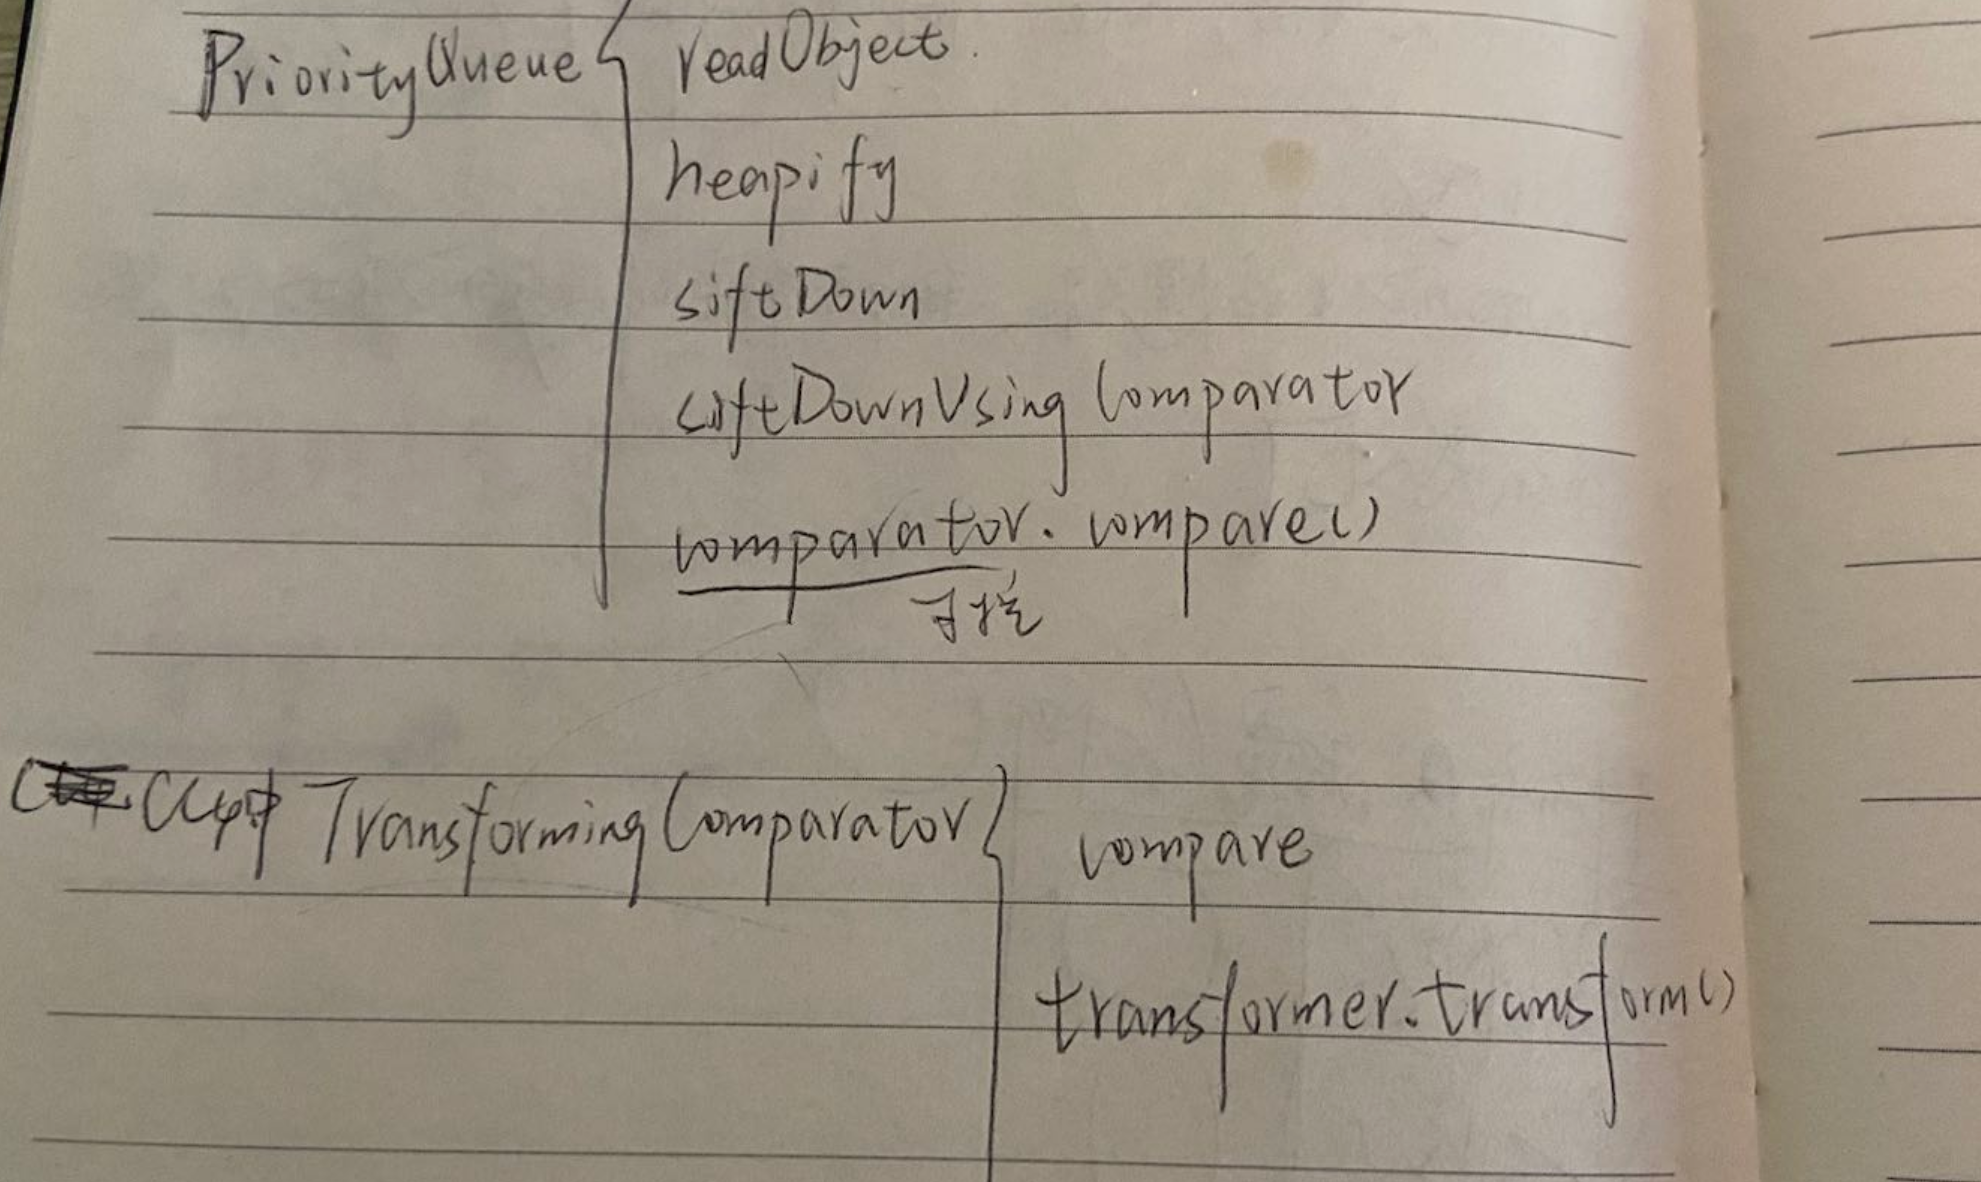 PriorityQueue { readObject.
heapify
siftDown
siftDownUsingComparator
comparator.compare()
可控
CC4中 TransformingComparator { compare
transformer.transform()